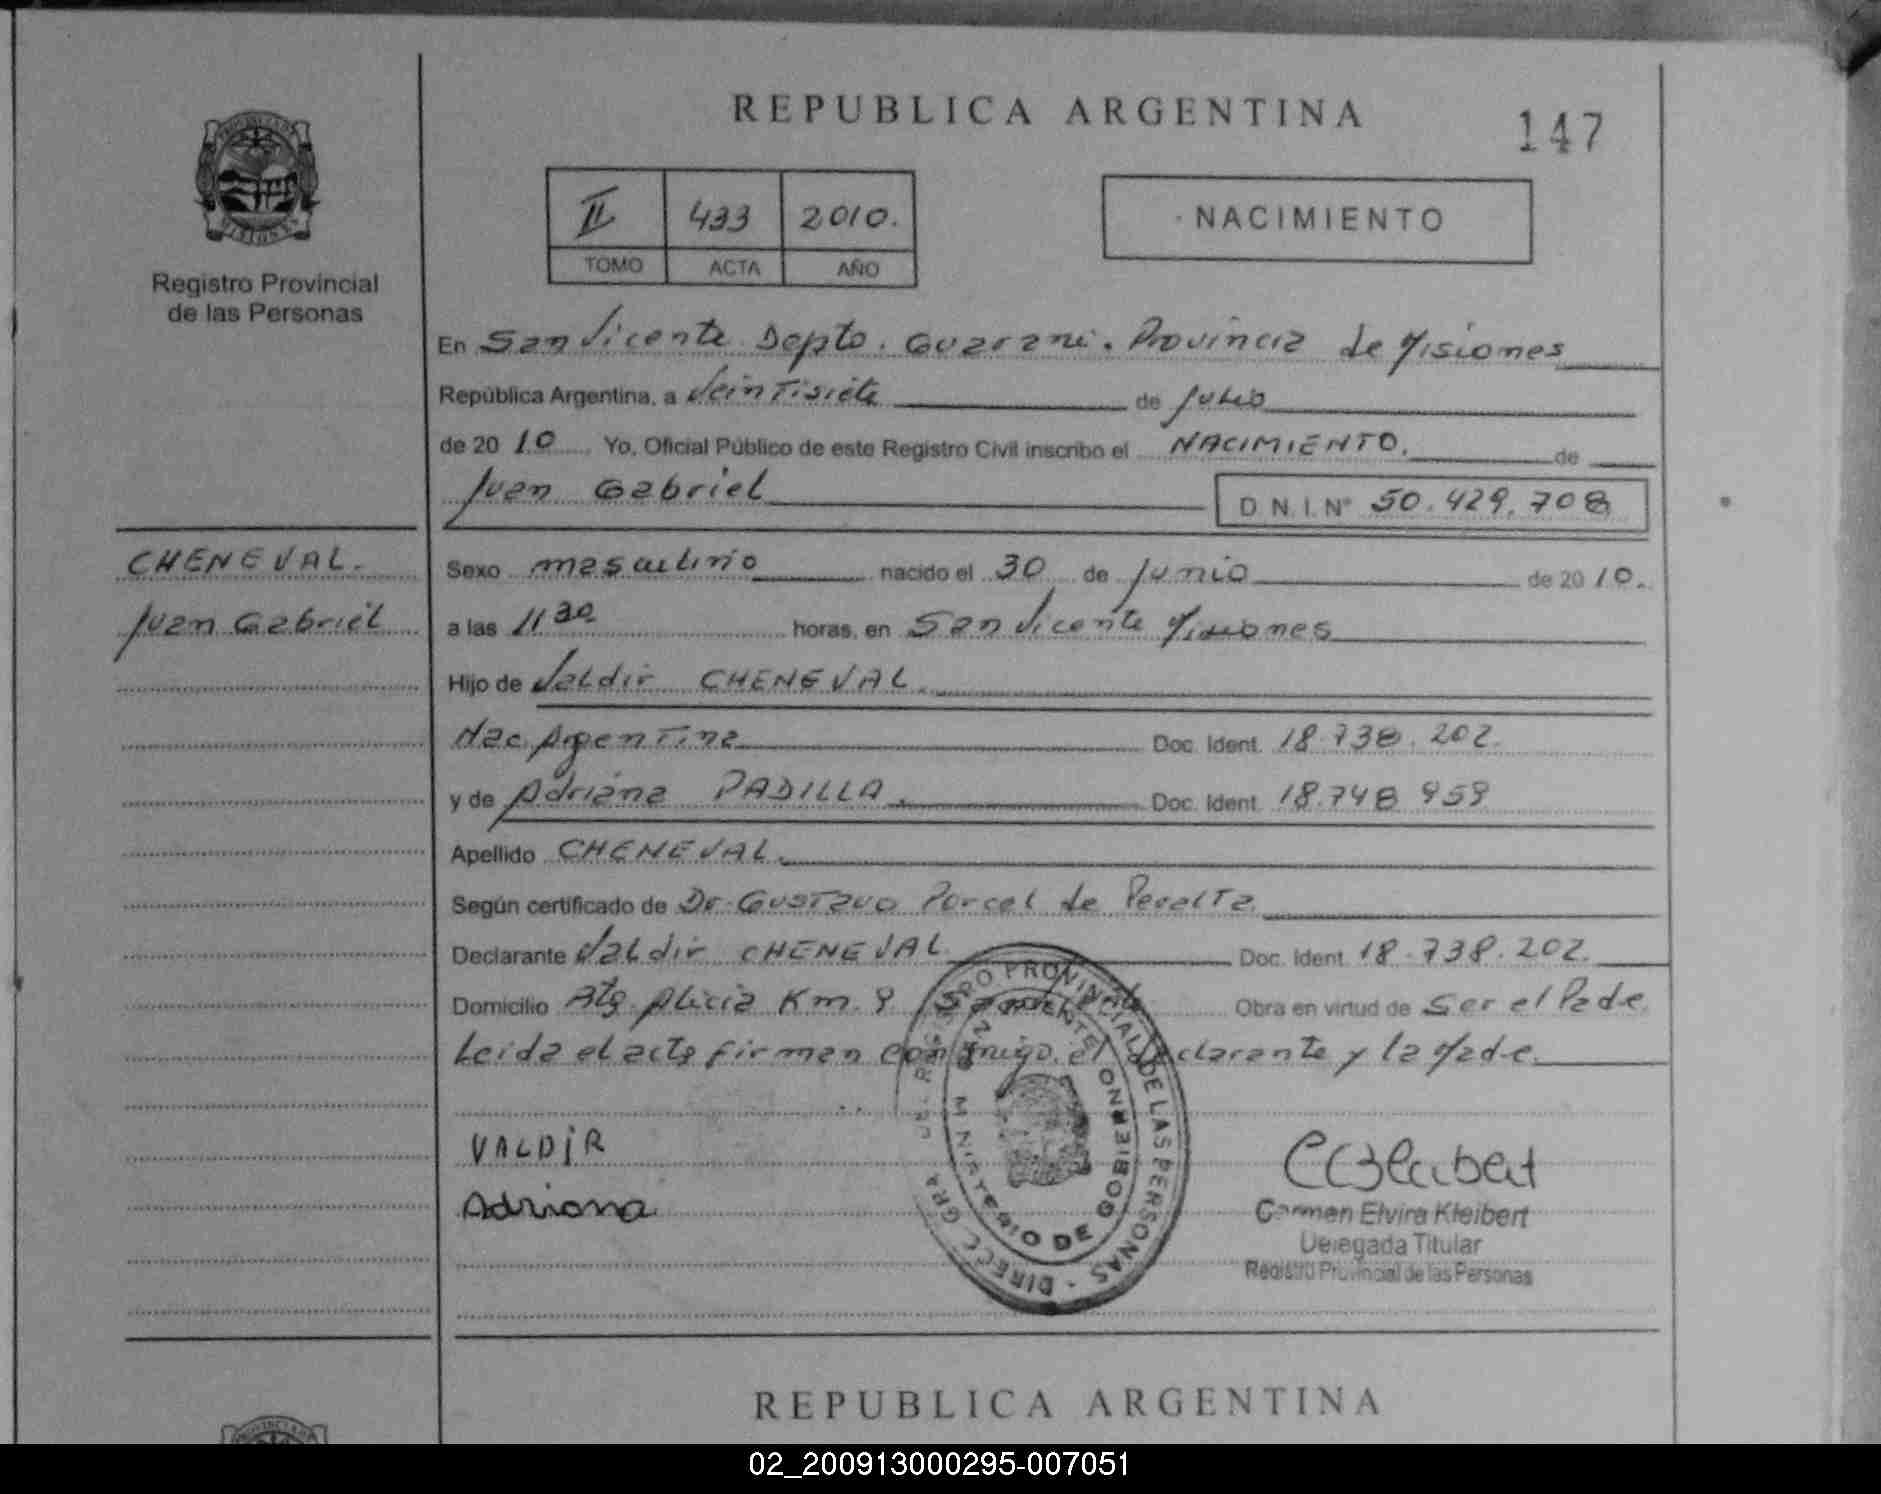 REPUBLICA ARGENTINA
147
PROVINCIA DE MISIONES
Registro Provincial
de las Personas
II 433 2010.
TOMO ACTA AÑO
NACIMIENTO
En San Vicente Depto. Guarani. Provincia de Misiones
República Argentina, a Veintisiete de Julio
de 20 10 Yo, Oficial Público de este Registro Civil inscribo el NACIMIENTO. de
Juan Gabriel D.N.I. Nº 50.429.708
CHENEVAL.
Juan Gabriel
Sexo masculino nacido el 30 de Junio de 20 10.
a las 11 30 horas, en San Vicente Misiones
Hijo de Valdir CHENEVAL.
Nac. Argentina Doc. Ident. 18.738.202.
y de Adriana PADILLA. Doc. Ident. 18.748 959
Apellido CHENEVAL.
Según certificado de Dr. Gustavo Porcel de Peralta.
Declarante Valdir CHENEVAL Doc. Ident. 18.738.202.
Domicilio Bº Alicia Km. 9 San Vicente Obra en virtud de Ser el Padre.
Leida el acta firman conmigo. el declarante y la Madre.
VALDIR
Adriana
DIRECC. GRAL. REGISTRO PROVINCIAL DE LAS PERSONAS
MINISTERIO DE GOBIERNO
SAN VICENTE
Carmen Elvira Kleibert
Delegada Titular
Registro Provincial de las Personas
REPUBLICA ARGENTINA
02_200913000295-007051